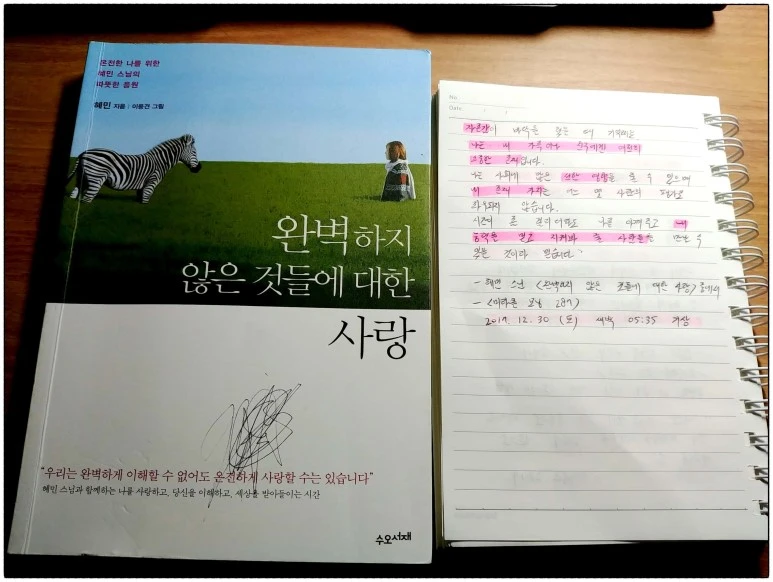 온전한 나를 위한
혜민 스님의
따뜻한 응원
혜민 지음 | 이응견 그림
완벽하지
않은 것들에 대한
사랑
"우리는 완벽하게 이해할 수 없어도 온전하게 사랑할 수는 있습니다"
혜민 스님과 함께하는 나를 사랑하고, 당신을 이해하고, 세상을 받아들이는 시간
수오서재
No.
Date
자존감이 바닥을 칠 때 기억하세요.
나는 내 가족이나 친구에겐 여전히
소중한 존재입니다.
나는 사회에 많은 선한 영향을 줄 수 있으며
내 존재 가치는 어느 몇 사람의 평가로
좌우되지 않습니다.
시간이 좀 걸리더라도 나를 아껴주고
능력을 알고 지켜봐 줄 사람들을 만날 수
있을 것이라 믿습니다.
- 혜민 스님 <완벽하지 않은 것들에 대한 사랑> 중에서
- <미라클 모닝 28>
12. 30 (토) 새벽 05:35 기상